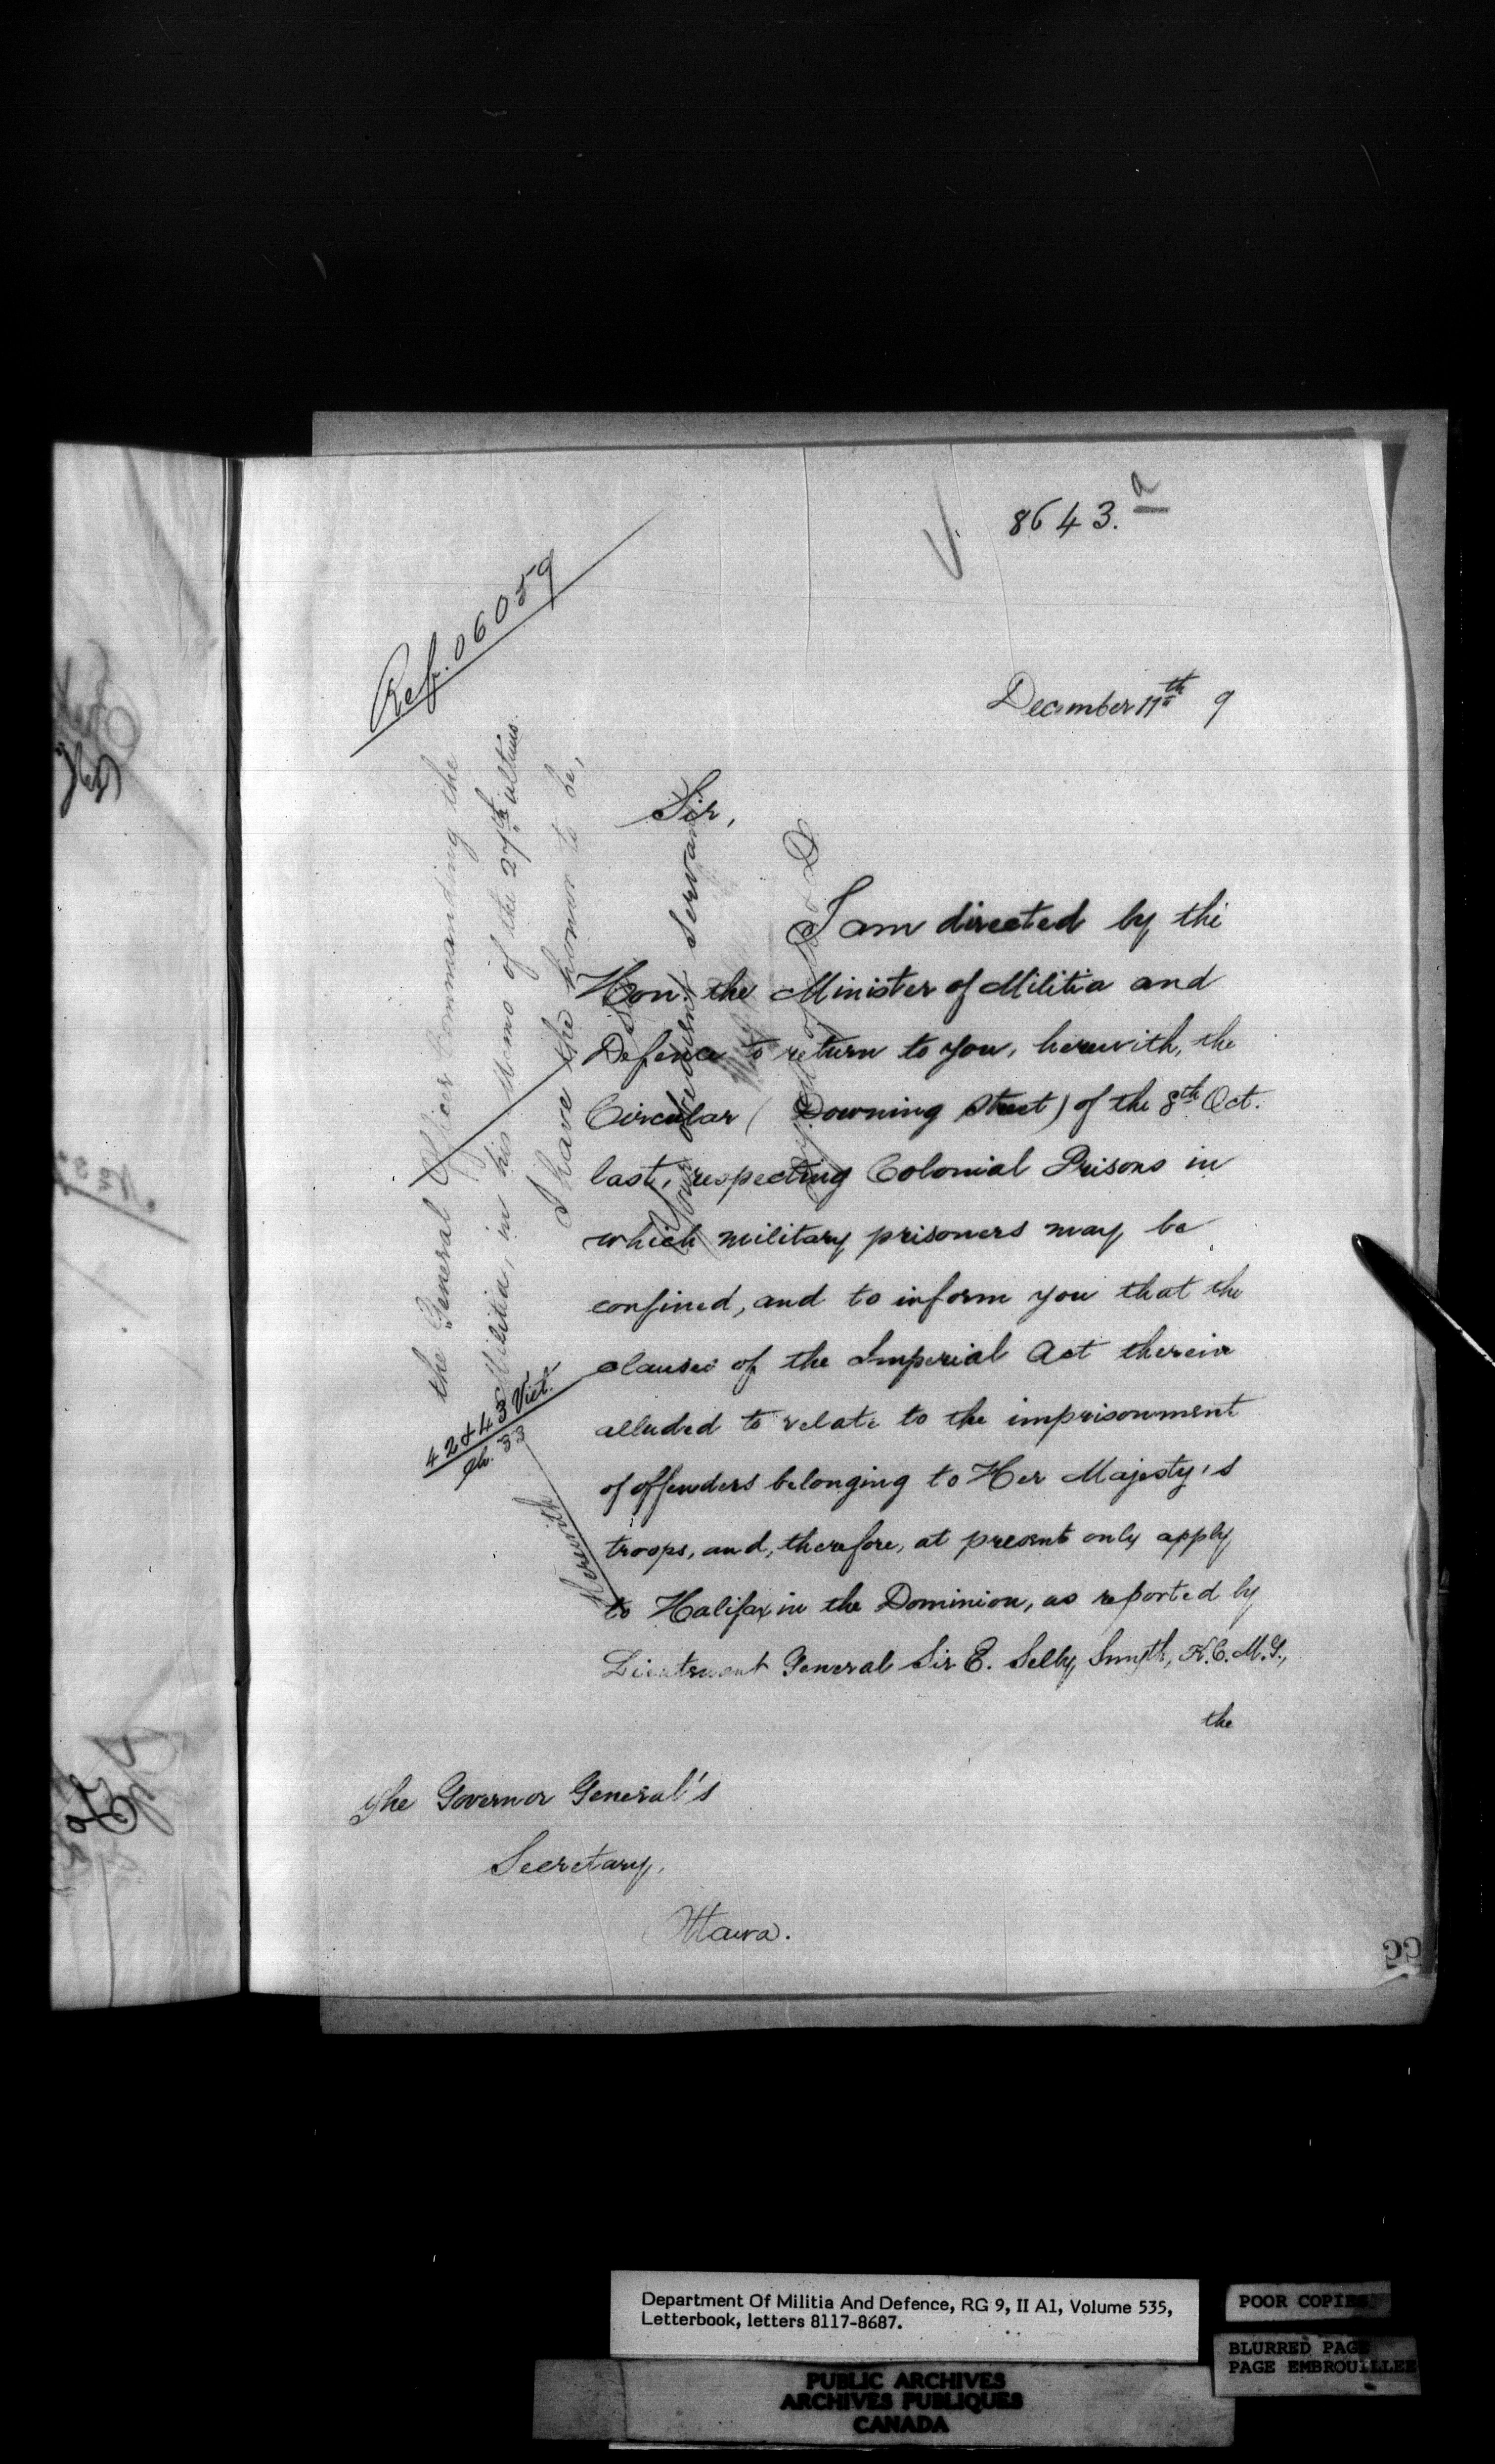 8643. a
Ref. 06059
December 11th 9
Sir,
I am directed by the
Hon. the Minister of Militia and
Defence to return to you, herewith, the
Circular (Downing Street) of the 8th Oct.
last, respecting Colonial Prisons in
which military prisoners may be
confined, and to inform you that the
clauses of the Imperial Act therein
42 & 43 Vict.
Ch. 33
alluded to relate to the imprisonment
of offenders belonging to Her Majesty's
troops, and, therefore, at present only apply
to Halifax in the Dominion, as reported by
Lieutenant General Sir E. Selby Smyth, K.C.M.G.,
the
The Governor General's
Secretary,
Ottawa.
the General Officer Commanding the
Militia, in his Memo of the 27th ultimo.
herewith
I have the honor to be,
Sir,
Your obedient Servant
Department Of Militia And Defence, RG 9, II A1, Volume 535,
Letterbook, letters 8117-8687.
POOR COPIES
BLURRED PAGE
PAGE EMBROUILLEE
PUBLIC ARCHIVES
ARCHIVES PUBLIQUES
CANADA